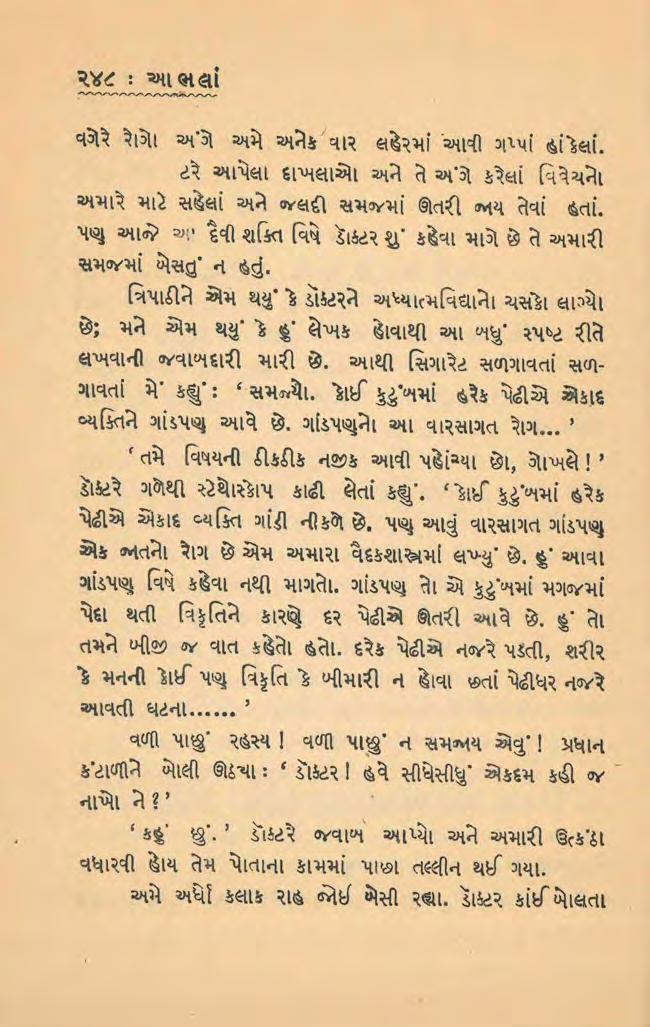 ૨૪૮ : આભલાં
વગેરે રોગો અંગે અમે અનેક વાર લહેરમાં આવી ગપ્પાં હાંકેલાં.
ટરે આપેલા દાખલાઓ અને તે અંગે કરેલાં વિવેચનો
અમારે માટે સહેલાં અને જલદી સમજમાં ઊતરી જાય તેવાં હતાં.
પણ આજે આ દૈવી શક્તિ વિષે ડૉક્ટર શું કહેવા માગે છે તે અમારી
સમજમાં બેસતું ન હતું.
ત્રિપાઠીને એમ થયું કે ડૉક્ટરને અધ્યાત્મવિદ્યાનો ચસકો લાગ્યો
છે; મને એમ થયું કે હું લેખક હોવાથી આ બધું સ્પષ્ટ રીતે
લખવાની જવાબદારી મારી છે. આથી સિગારેટ સળગાવતાં સળ-
ગાવતાં મેં કહ્યું: ‘સમજ્યો. કોઈ કુટુંબમાં હરેક પેઢીએ એકાદ
વ્યક્તિને ગાંડપણ આવે છે. ગાંડપણનો આ વારસાગત રોગ...’
‘તમે વિષયની ઠીકઠીક નજીક આવી પહોંચ્યા છો, ગોખલે!’
ડૉક્ટરે ગળેથી સ્ટેથોસ્કોપ કાઢી લેતાં કહ્યું. ‘કોઈ કુટુંબમાં હરેક
પેઢીએ એકાદ વ્યક્તિ ગાંડી નીકળે છે. પણ આવું વારસાગત ગાંડપણ
એક જાતનો રોગ છે એમ અમારા વૈદકશાસ્ત્રમાં લખ્યું છે. હું આવા
ગાંડપણ વિષે કહેવા નથી માગતો. ગાંડપણ તો એ કુટુંબમાં મગજમાં
પેદા થતી વિકૃતિને કારણે દર પેઢીએ ઊતરી આવે છે. હું તો
તમને બીજી જ વાત કહેતો હતો. દરેક પેઢીએ નજરે પડતી, શરીર
કે મનની કોઈ પણ વિકૃતિ કે બીમારી ન હોવા છતાં પેઢીધર નજરે
આવતી ઘટના......’
વળી પાછું રહસ્ય! વળી પાછું ન સમજાય એવું! પ્રધાન
કંટાળીને બોલી ઊઠ્યા: ‘ડૉક્ટર! હવે સીધેસીધું એકદમ કહી જ
નાખો ને?’
‘કહું છું.’ ડૉક્ટરે જવાબ આપ્યો અને અમારી ઉત્કંઠા
વધારવી હોય તેમ પોતાના કામમાં પાછા તલ્લીન થઈ ગયા.
અમે અર્ધો કલાક રાહ જોઈ બેસી રહ્યા. ડૉક્ટર કાંઈ બોલતા